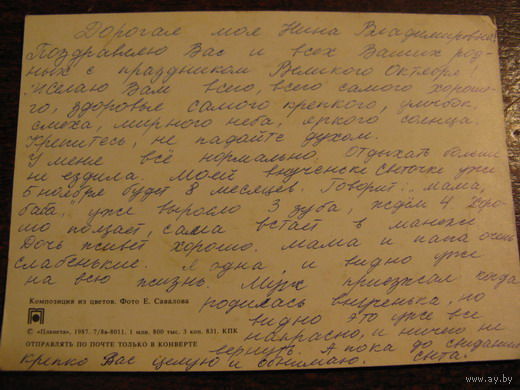 Дорогая моя Нина Владимировна!
Поздравляю Вас и всех Ваших род-
ных с праздником Великого Октября
Желаю Вам всего, всего самого хороше-
го, здоровья самого крепкого, улыбок,
смеха, мирного неба, яркого солнца.
Крепитесь, не падайте духом.
У меня всё нормально. Отдыхать больше
не ездила. Моей внученьке Светочке уже
5 ноября будет 8 месяцев. Говорит: мама,
баба, уже выросло 3 зуба, ждём 4. Хоро-
шо ползает, сама встаёт в манеже.
Дочь живёт хорошо. Мама и папа очень
слабенькие. Я одна, и видно уже
на всю жизнь. Муж приезжал когда
родилась внученька, но
видно это уже всё
напрасно, и ничего не
вернуть. А пока до свидания
крепко Вас целую и обнимаю. Света.
Композиция из цветов. Фото Е. Савалова
© «Планета», 1987. 7/8а-8011. 1 млн. 800 тыс. 3 коп. 831. КПК
ОТПРАВЛЯТЬ ПО ПОЧТЕ ТОЛЬКО В КОНВЕРТЕ
www.ay.by